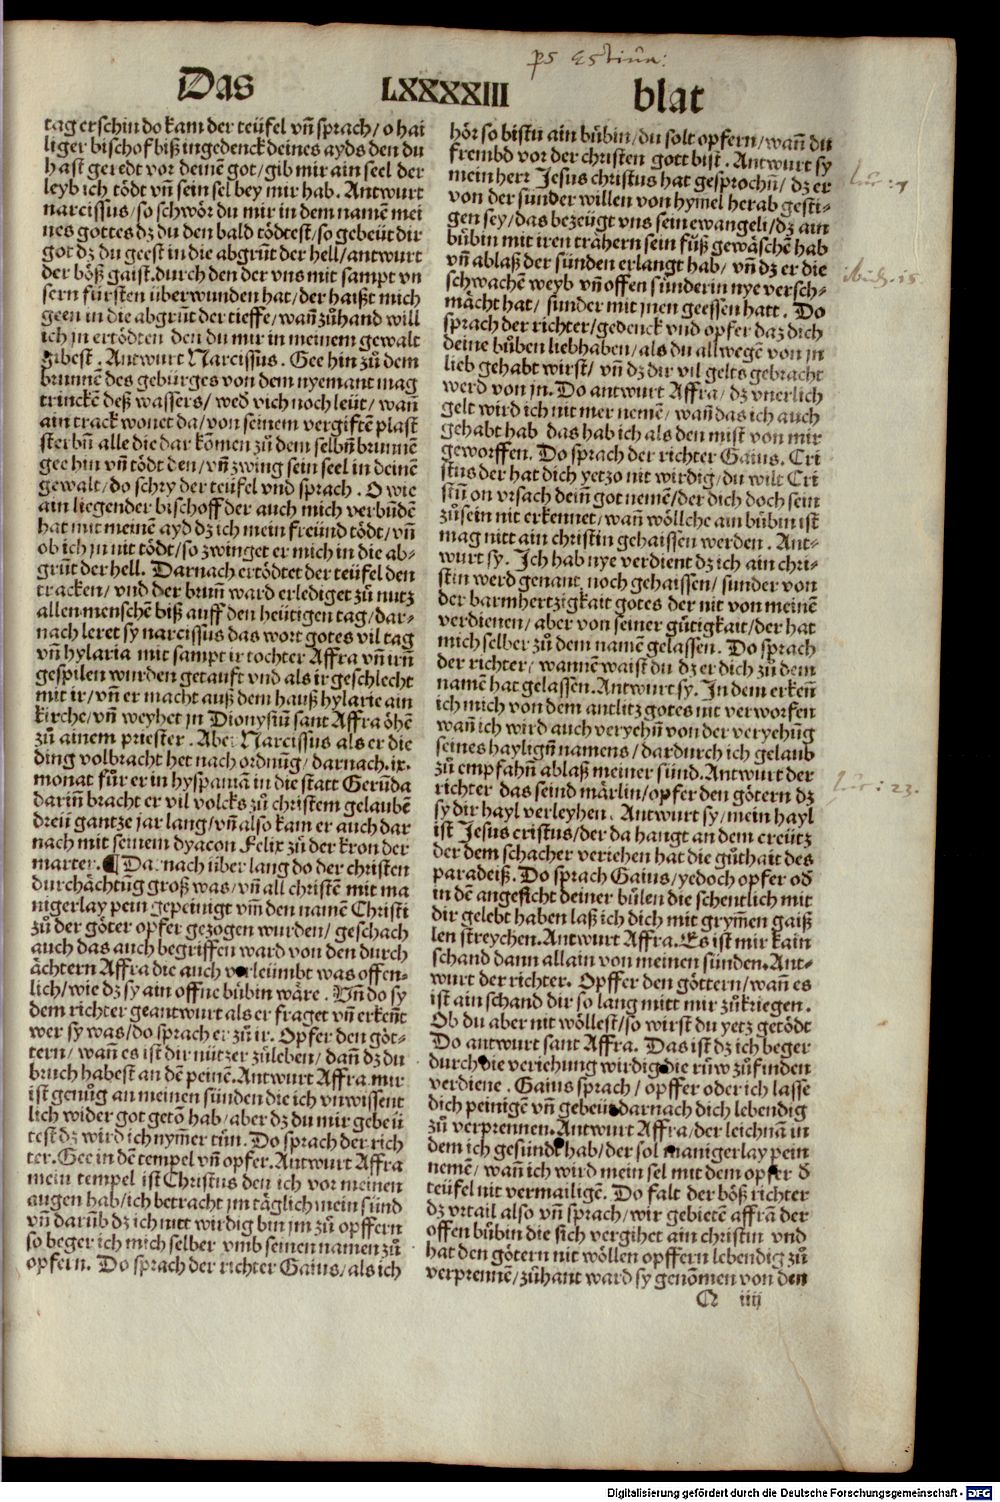 ps Estiua:
Das LXXXXIII blat
tag erschin do kam der teüfel vñ sprach/ o hai
liger bischof biß ingedenck deines ayds den du
hast geredt vor deinē got/ gib mir ain seel der
leyb ich tödt vñ sein sel bey mir hab. Antwurt
narcissus/ so schwör du mir in dem namē mei
nes gottes dz du den bald tödtest/ so gebeüt dir
got dz du geest in die abgrūt der hell/ antwurt
der böß gaist. durch den der vns mit sampt vn
sern fürsten überwunden hat/ der haißt mich
geen in die abgrūt der tieffe/ wañ zůhand will
ich jn ertödten den du mir in meinem gewalt
gibest. Antwurt Narcissus. Gee hin zů dem
brunnē des gebürges von dem nyemant mag
trinckē deß wassers/ wed vich noch leüt/ wañ
ain track wonet da/ von seinem vergiftē plast
sterbñ alle die dar kōmen zů dem selbñ brunnē
gee hin vñ tödt den/ vñ zwing sein seel in deinē
gewalt/ do schry der teüfel vnd sprach. O wie
ain liegender bischoff der auch mich verbūdē
hat mit meinē ayd dz ich mein freünd tödt/ vñ
ob ich jn nit tödt/ so zwinget er mich in die ab⸗
grūt der hell. Darnach ertödtet der teüfel den
tracken/ vnd der brunn ward erlediget zů nutz
allen menschē biß auff den heütigen tag/ dar⸗
nach leret sy narcissus das wort gotes vil tag
vñ hylaria mit sampt ir tochter Affra vñ irñ
gespilen wurden getauft vnd als ir geschlecht
mit ir/ vñ er macht auß dem hauß hylarie ain
kirche/ vñ weyhet jn Dionysiū sant Affra öhē
zů ainem priester. Aber Narcissus als er die
ding volbracht het nach ordnūg/ darnach. ix.
monat für er in hyspaniā in die statt Gerūda
dariñ bracht er vil volcks zů christem gelaubē
dreü gantze jar lang/ vñ also kam er auch dar
nach mit seinem dyacon Felix zů der kron der
marter. ¶ Darnach über lang do der christen
durchächtūg groß was/ vñ all christē mit ma
nigerlay pein gepeinigt vm̄ den namē Christi
zů der göter opfer gezogen wurden/ geschach
auch das auch begriffen ward von den durch
ächtern Affra die auch verleümbt was offen⸗
lich/ wie dz sy ain offne bübin wäre. Vñ do sy
dem richter geantwurt als er fraget vñ erkeñt
wer sy was/ do sprach er zů ir. Opfer den göt⸗
tern/ wañ es ist dir nützer züleben/ dañ dz du
bruch habest an dē peinē. Antwurt Affra mir
ist genůg an meinen sünden die ich vnwissent
lich wider got getō hab/ aber dz du mir gebeü
test dz wird ich nym̄er tün. Do sprach der rich
ter. Gee in dē tempel vñ opfer. Antwurt Affra
mein tempel ist Christus den ich vor meinen
augen hab/ ich betracht jm täglich mein sünd
vñ darūb dz ich nitt wirdig bin jm zů opffern
so beger ich mich selber vmb seinen namen zů
opfern. Do sprach der richter Gaius/ als ich
hör so bistu ain bübin/ du solt opfern/ wañ du
frembd vor der christen gott bist. Antwurt sy
mein herr Jesus christus hat gesprochñ/ dz er
von der sünder willen von hymel herab gesti⸗
gen sey/ das bezeügt vns sein ewangeli/ dz ain
bübin mit iren trähern sein füß gewäschē hab
vñ ablaß der sünden erlangt hab/ vñ dz er die
schwachē weyb vñ offen sünderin nye versch⸗
mächt hat/ sunder mit jnen geessen hatt. Do
sprach der richter/ gedenck vnd opfer daz dich
deine büben liebhaben/ als du allwegē von jn
lieb gehabt wirst/ vñ dz dir vil gelts gebracht
werd von jn. Do antwurt Affra/ dz vnerlich
gelt wird ich nit mer nemē/ wañ das ich auch
gehabt hab das hab ich als den mist von mir
geworffen. Do sprach der richter Gaius. Cri
stus der hat dich yetzo nit wirdig/ du wilt Cri
stū on vrsach deiñ got nemē/ der dich doch sein
zůsein nit erkennet/ wañ wöllche ain bübin ist
mag nitt ain christin gehaissen werden. Ant⸗
wurt sy. Ich hab nye verdient dz ich ain chri⸗
stin werd genant noch gehaissen/ sunder von
der barmhertzigkait gotes der nit von meinē
verdienen/ aber von seiner gütigkait/ der hat
mich selber zů dem namē gelassen. Do sprach
der richter/ wannē waist du dz er dich zů dem
namē hat gelassen. Antwurt sy. In dem erkeñ
ich mich von dem antlitz gotes nit verworfen
wañ ich wird auch veryehñ von der veryehūg
seines hayligñ namens/ dardurch ich gelaub
zů empfahñ ablaß meiner sünd. Antwurt der
richter das seind märlin/ opfer den götern dz
sy dir hayl verleyhen. Antwurt sy/ mein hayl
ist Jesus cristus/ der da hangt an dem creütz
der dem schacher veriehen hat die güthait des
paradeiß. Do sprach Gaius/ yedoch opfer od
in dē angesicht deiner bülen die schentlich mit
dir gelebt haben laß ich dich mit grym̄en gaiß
len streychen. Antwurt Affra. Es ist mir kain
schand dann allain von meinen sünden. Ant⸗
wurt der richter. Opffer den göttern/ wañ es
ist ain schand dir so lang mitt mir zůkriegen.
Ob du aber nit wöllest/ so wirst du yetz getödt
Do antwurt sant Affra. Das ist dz ich beger
durch die veriehung wirdig die rüw zůfinden
verdiene. Gaius sprach/ opffer oder ich lasse
dich peinigē vñ gebeüt darnach dich lebendig
zů verprennen. Antwurt Affra/ der leichnā in
dem ich gesündt hab/ der sol manigerlay pein
nemē/ wañ ich wird mein sel mit dem opfer d̄
teüfel nit vermailigē. Do falt der böß richter
dz vrtail also vñ sprach/ wir gebietē affrā der
offen bübin die sich vergihet ain christin vnd
hat den götern nit wöllen opffern lebendig zů
verprennē/ zůhant ward sy genōmen von den
Q iiij
luc: 7
Luc: 23.
Digitalisierung gefördert durch die Deutsche Forschungsgemeinschaft - DFG